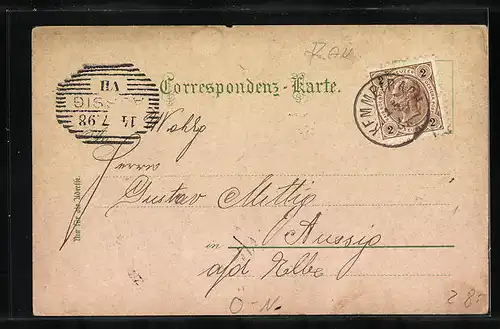 Correspondenz-Karte.
VII
AUSSIG
14 7.98
2 2
2 2
Wohlg
Herrn
Gustav Mettig
in Aussig
a/d Elbe
Nur für die Adresse.
O-N.